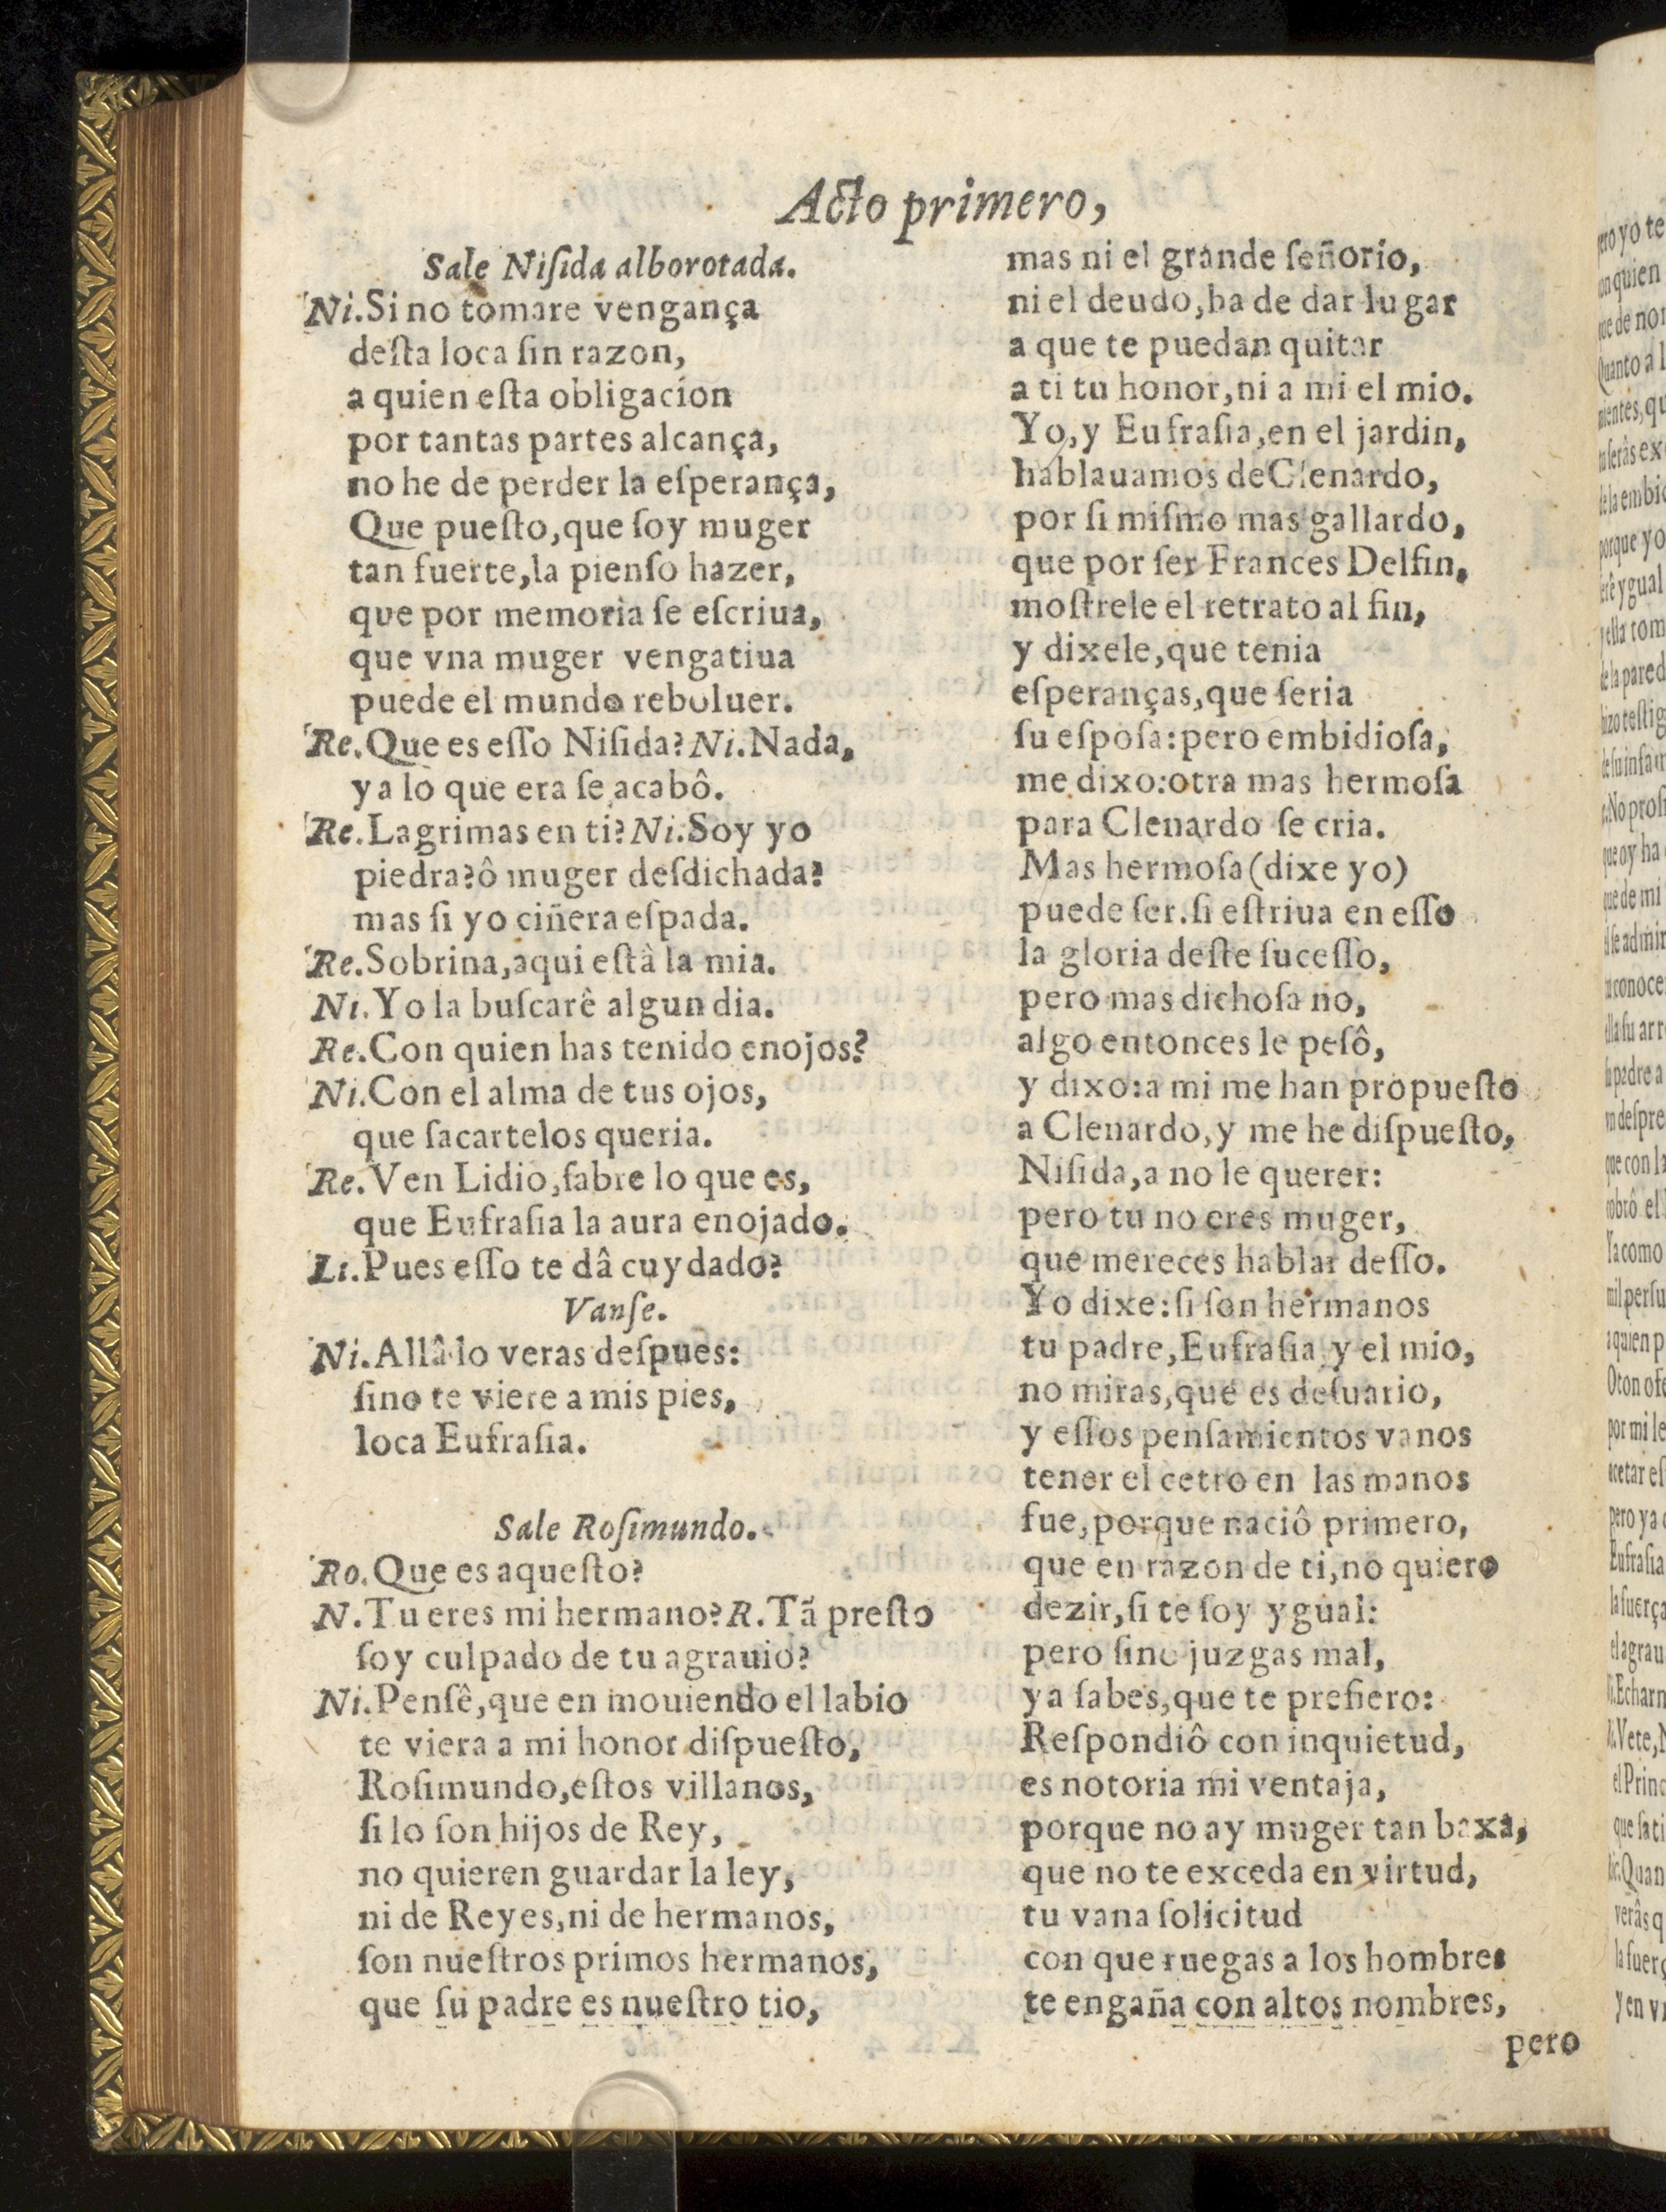 Acto primero,
Sale Niſida alborotada.
Ni.Si no tomare vengança
deſta loca ſin razon,
a quien eſta obligacion
por tantas partes alcança,
no he de perder la eſperança,
Que pueſto,que ſoy muger
tan fuerte,la pienſo hazer,
que por memoria ſe eſcriua,
que vna muger vengatiua
puede el mundo reboluer.
Re.Que es eſſo Niſida?Ni.Nada,
ya lo que era ſe acabô.
Re.Lagrimas en ti?Ni.Soy yo
piedra?ô muger deſdichada?
mas ſi yo ciñera eſpada.
Re.Sobrina,aqui eſtâ la mia.
Ni.Yo la buſcarê algun dia.
Re.Con quien has tenido enojos?
Ni.Con el alma de tus ojos,
que ſacartelos queria.
Re.Ven Lidio,ſabre lo que es,
que Eufraſia la aura enojado.
Li.Pues eſſo te dâ cuydado?
Vanſe.
Ni.Allâ lo veras deſpues:
ſino te viere a mis pies,
loca Eufraſia.
Sale Roſimundo.
Ro.Que es aqueſto?
N.Tu eres mi hermano?R.Tã preſto
ſoy culpado de tu agrauio?
Ni.Penſê,que en mouiendo el labio
te viera a mi honor diſpueſto,
Roſimundo,eſtos villanos,
ſi lo ſon hijos de Rey,
no quieren guardar la ley,
ni de Reyes,ni de hermanos,
ſon nueſtros primos hermanos,
que ſu padre es nueſtro tio,
mas ni el grande ſeñorio,
ni el deudo,ha de dar lugar
a que te puedan quitar
a ti tu honor,ni a mi el mio.
Yo,y Eufraſia,en el jardin,
hablauamos de Clenardo,
por ſi miſmo mas gallardo,
que por ſer Frances Delfin,
moſtrele el retrato al fin,
y dixele,que tenia
eſperanças,que ſeria
ſu eſpoſa:pero embidioſa,
me dixo:otra mas hermoſa
para Clenardo ſe cria.
Mas hermoſa(dixe yo)
puede ſer.ſi eſtriua en eſſo
la gloria deſte ſuceſſo,
pero mas dichoſa no,
algo entonces le peſô,
y dixo:a mi me han propueſto
a Clenardo,y me he diſpueſto,
Niſida,a no le querer:
pero tu no eres muger,
que mereces hablar deſſo.
Yo dixe:ſi ſon hermanos
tu padre,Eufraſia,y el mio,
no miras,que es deſuario,
y eſſos penſamientos vanos
tener el cetro en las manos
fue,porque naciô primero,
que en razon de ti,no quiero
dezir,ſi te ſoy ygual:
pero ſino juzgas mal,
ya ſabes,que te prefiero:
Reſpondiô con inquietud,
es notoria mi ventaja,
porque no ay muger tan baxa,
que no te exceda en virtud,
tu vana ſolicitud
con que ruegas a los hombres
te engaña con altos nombres,
pero